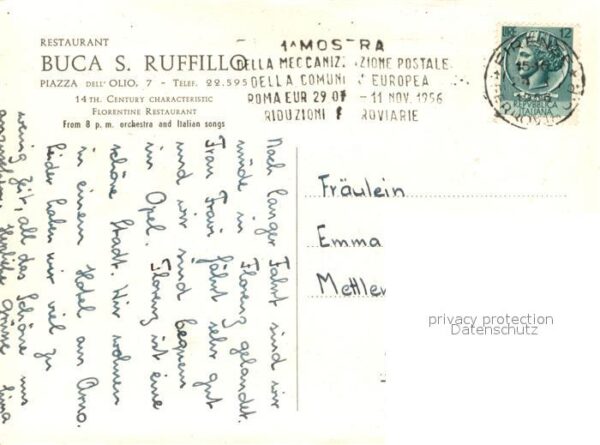 RESTAURANT
BUCA S. RUFFILLO
PIAZZA DELL'OLIO, 7 - TELEF. 22.595
14 TH. CENTURY CHARACTERISTIC
FLORENTINE RESTAURANT
From 8 p. m. orchestra and Italian songs
1ª MOSTRA
DELLA MECCANIZZAZIONE POSTALE
DELLA COMUNI EUROPEA
ROMA EUR 29 OT - 11 NOV. 1956
RIDUZIONI F ROVIARIE
LIRE 12
FIRENZE
1956
REPVBBLICA
ITALIANA
Nach langer Fahrt sind wir
müde in Florenz gelandet.
Frau Fravi fährt sehr gut
und wir sind bequem
im Opel. Florenz ist eine
schöne Stadt. Wir wohnen
in einem Hotel am Arno.
Leider haben wir viel zu
wenig Zeit, all das Schöne uns
anzusehen. Herzliche Grüsse
Fräulein
Emma
Mettler
privacy protection
Datenschutz